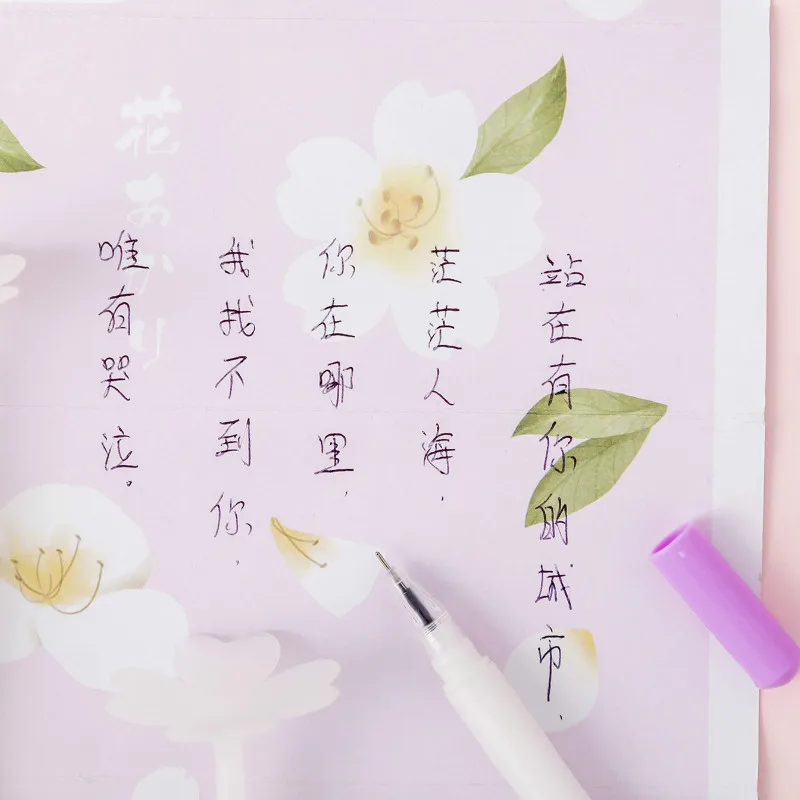 站在有你的城市，
茫茫人海，
你在哪里，
我找不到你，
唯有哭泣。
花あかり